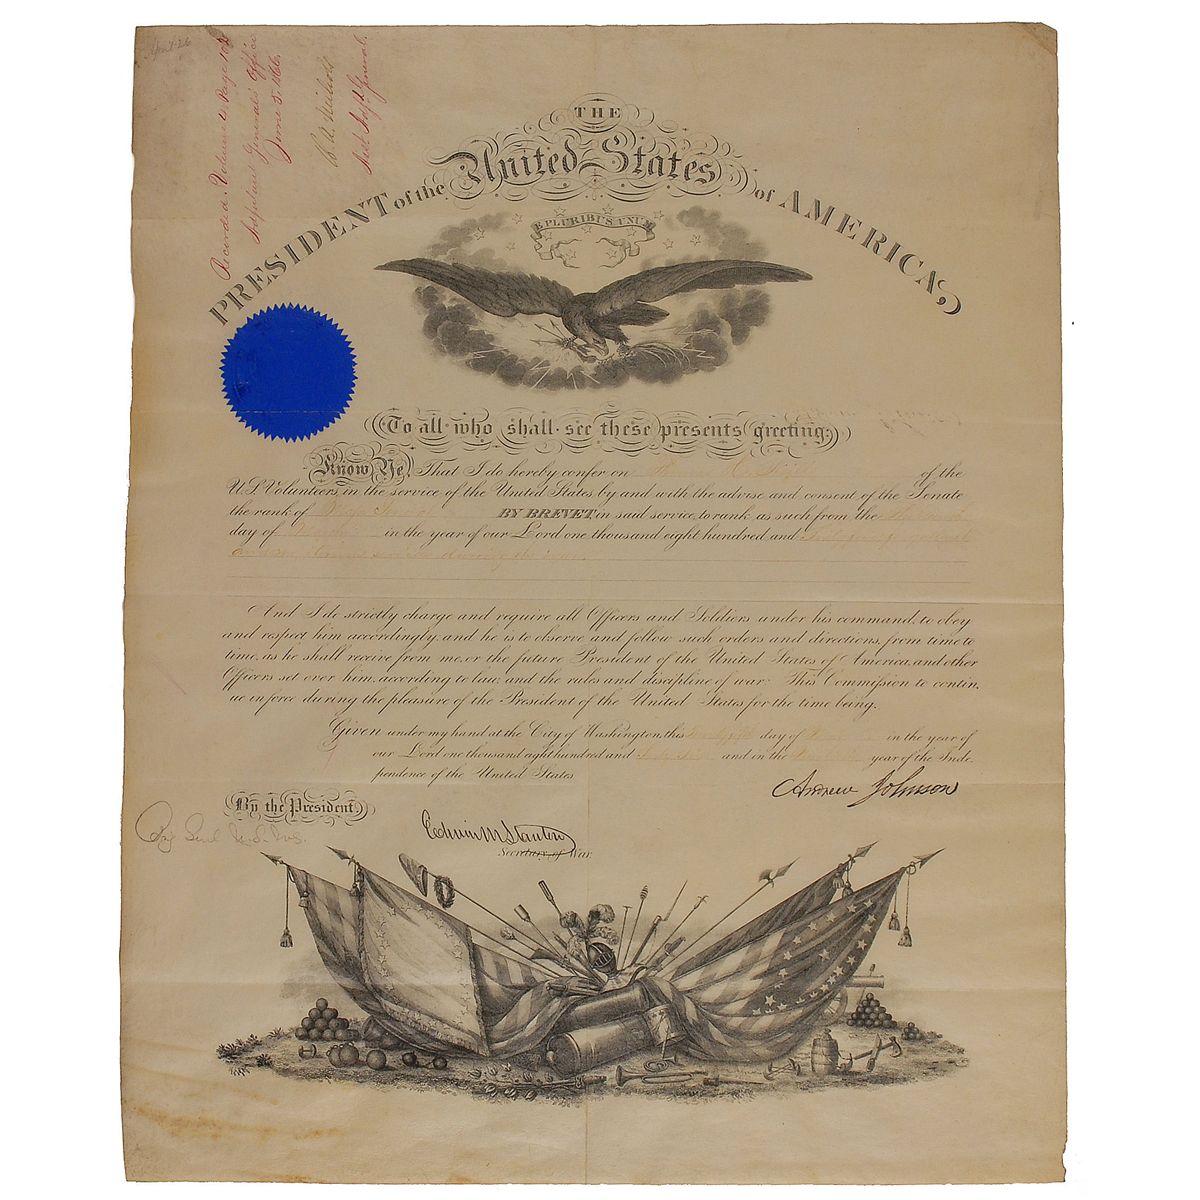 Recorded, Volume 2 Page 102
Adjutant General's Office
June 5. 1866.
Asst Adjt General.
THE
PRESIDENT of the United States of AMERICA,
E PLURIBUS UNUM
To all who shall see these presents greeting:
Know Ye, That I do hereby confer on of the
U.S. Volunteers, in the service of the United States by and with the advise and consent of the Senate
the rank of BY BREVET in said service, to rank as such from the
day of in the year of our Lord one thousand eight hundred and
service during the war.
And I do strictly charge and require all Officers and Soldiers under his command, to obey
and respect him accordingly, and he is to observe and follow such orders and directions, from time to
time, as he shall receive from me, or the future President of the United States of America, and other
Officers set over him, according to law, and the rules and discipline of war. This Commission to contin,
ue in force during the pleasure of the President of the United States for the time being.
Given under my hand at the City of Washington, this day of in the year of
our Lord one thousand eight hundred and and in the year of the Inde-
pendence of the United States
Andrew Johnson
By the President,
Edwin M Stanton
Secretary of War.
Brig Genl U.S. Vols.